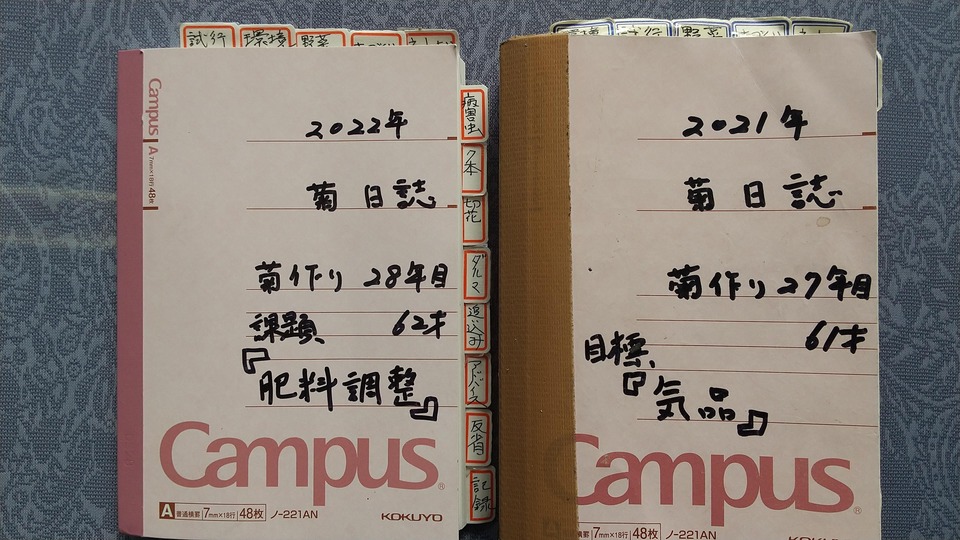 試行
環境
野菜
2022年
菊日誌
菊作り 28年目
課題 62才
『肥料調整』
Campus
A 普通横罫 7mm×18行 48枚 ノ-221AN
KOKUYO
Campus A 7mm×18行 48枚
病害虫
切花
ダルマ
追込み
アドバイス
反省
記録
試行
野菜
2021年
菊日誌
菊作り 27年目
61才
目標
『気品』
Campus
横罫 7mm×18行 48枚 ノ-221AN